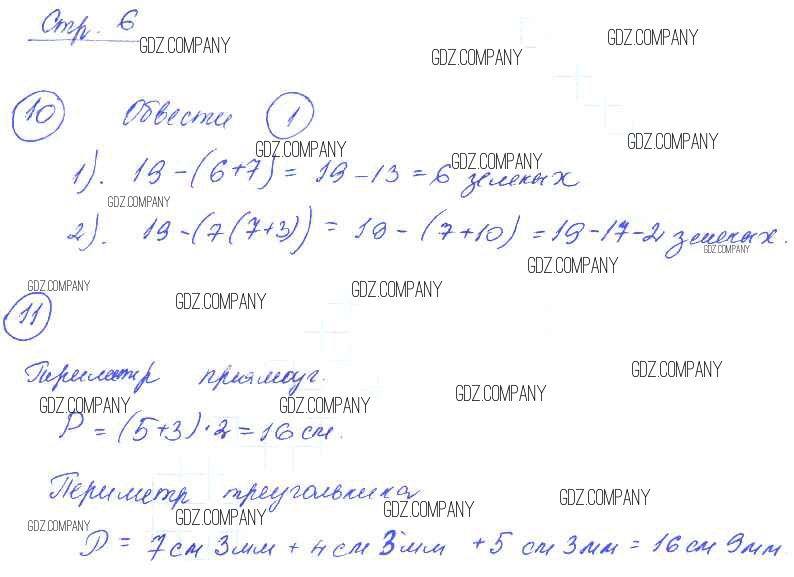 Стр. 6
GDZ.COMPANY
GDZ.COMPANY
GDZ.COMPANY
10 Обвести 1
GDZ.COMPANY
GDZ.COMPANY
GDZ.COMPANY
1). 19 - (6+7) = 19 - 13 = 6 зеленых
GDZ.COMPANY
2). 19 - (7 (7+3)) = 19 - (7+10) = 19 - 17 - 2 зеленых.
GDZ.COMPANY
GDZ.COMPANY
GDZ.COMPANY
GDZ.COMPANY
GDZ.COMPANY
11
Периметр прямоуг.
GDZ.COMPANY
GDZ.COMPANY
GDZ.COMPANY
GDZ.COMPANY
P = (5+3) · 2 = 16 см.
Периметр треугольника
GDZ.COMPANY
GDZ.COMPANY
GDZ.COMPANY
GDZ.COMPANY
P = 7 см 3 мм + 4 см 3 мм + 5 см 3 мм = 16 см 9 мм.